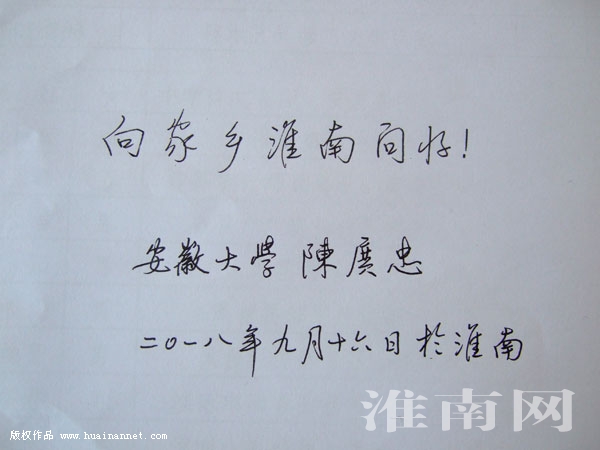 向家乡淮南问好!
安徽大學 陳廣忠
二〇一八年九月十六日於淮南
淮南网
版权作品 www.huainannet.com